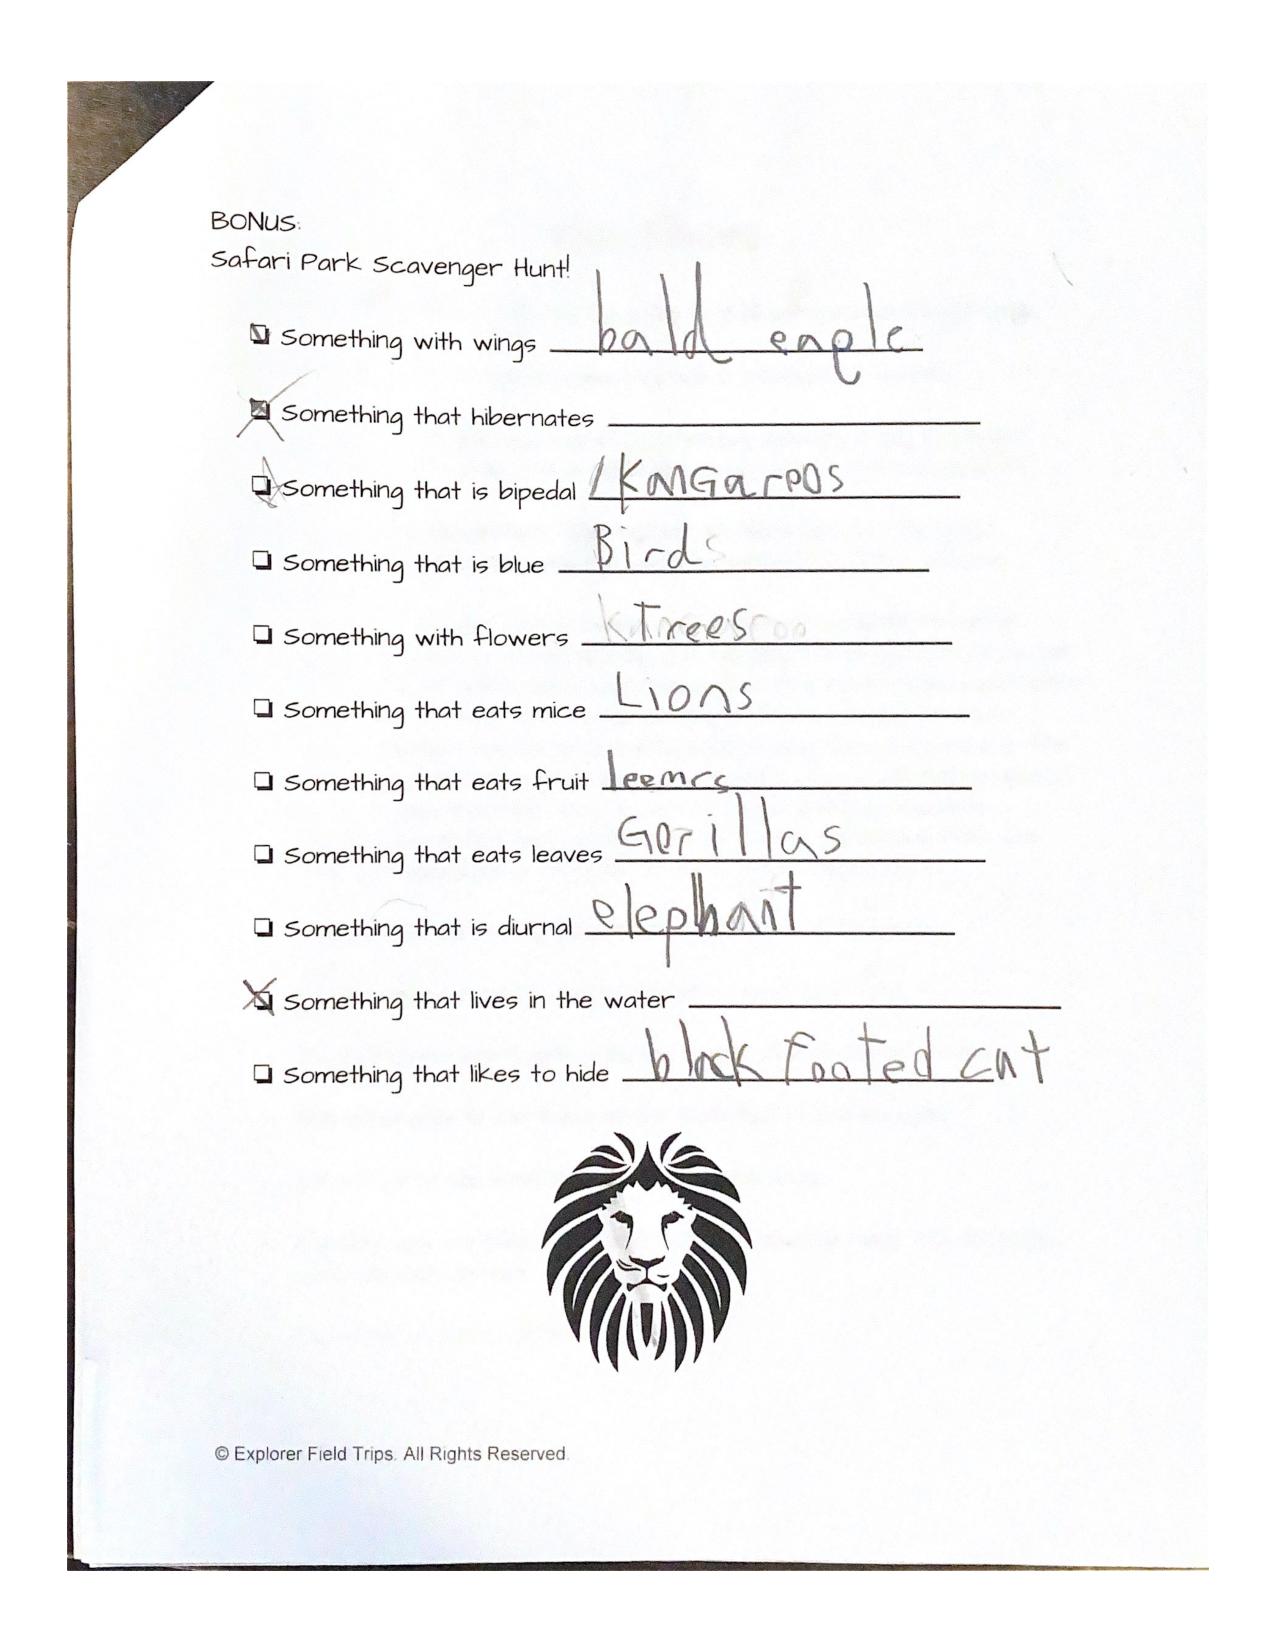 BONUS:
Safari Park Scavenger Hunt!
Something with wings bald eagle
Something that hibernates
Something that is bipedal Kangaroos
Something that is blue Birds
Something with flowers Trees
Something that eats mice Lions
Something that eats fruit leemrs
Something that eats leaves Gorillas
Something that is diurnal elephant
Something that lives in the water
Something that likes to hide black footed cat
© Explorer Field Trips. All Rights Reserved.